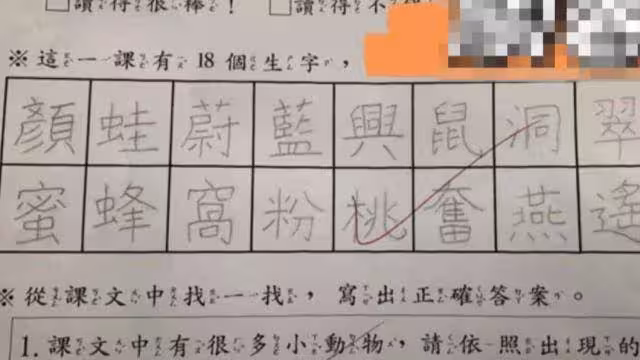 □讀得很棒！ □讀得不
※這一課有18個生字，
顏蛙蔚藍興鼠洞翠
蜜蜂窩粉桃奮燕遙
※從課文中找一找，寫出正確答案。
1.課文中有很多小動物，請依照出現的